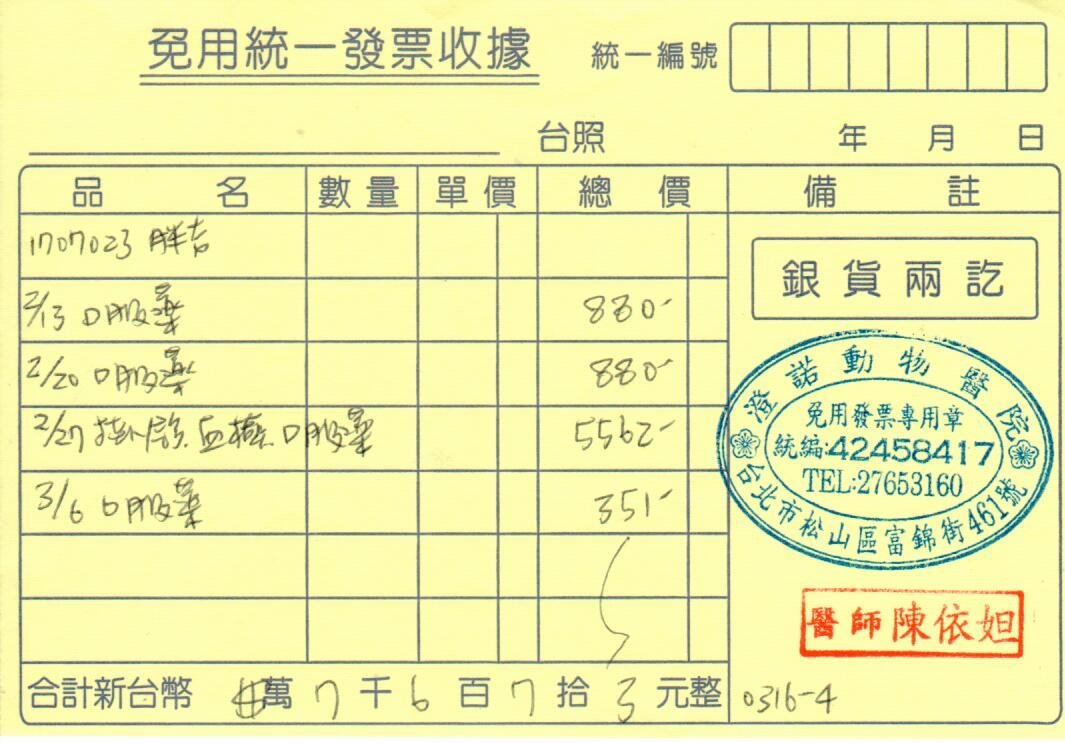 免用統一發票收據 統一編號
台照 年 月 日
品名 數量 單價 總價 備註
1707023 胖吉
銀貨兩訖
2/13 口服藥 880-
2/20 口服藥 880-
2/27 掛號. 血檢. 口服藥 5562-
3/6 口服藥 351-
澄諾動物醫院
免用發票專用章
統編:42458417
TEL:27653160
台北市松山區富錦街461號
醫師陳依妲
合計新台幣 萬 7 千 6 百 7 拾 3 元整 0316-4